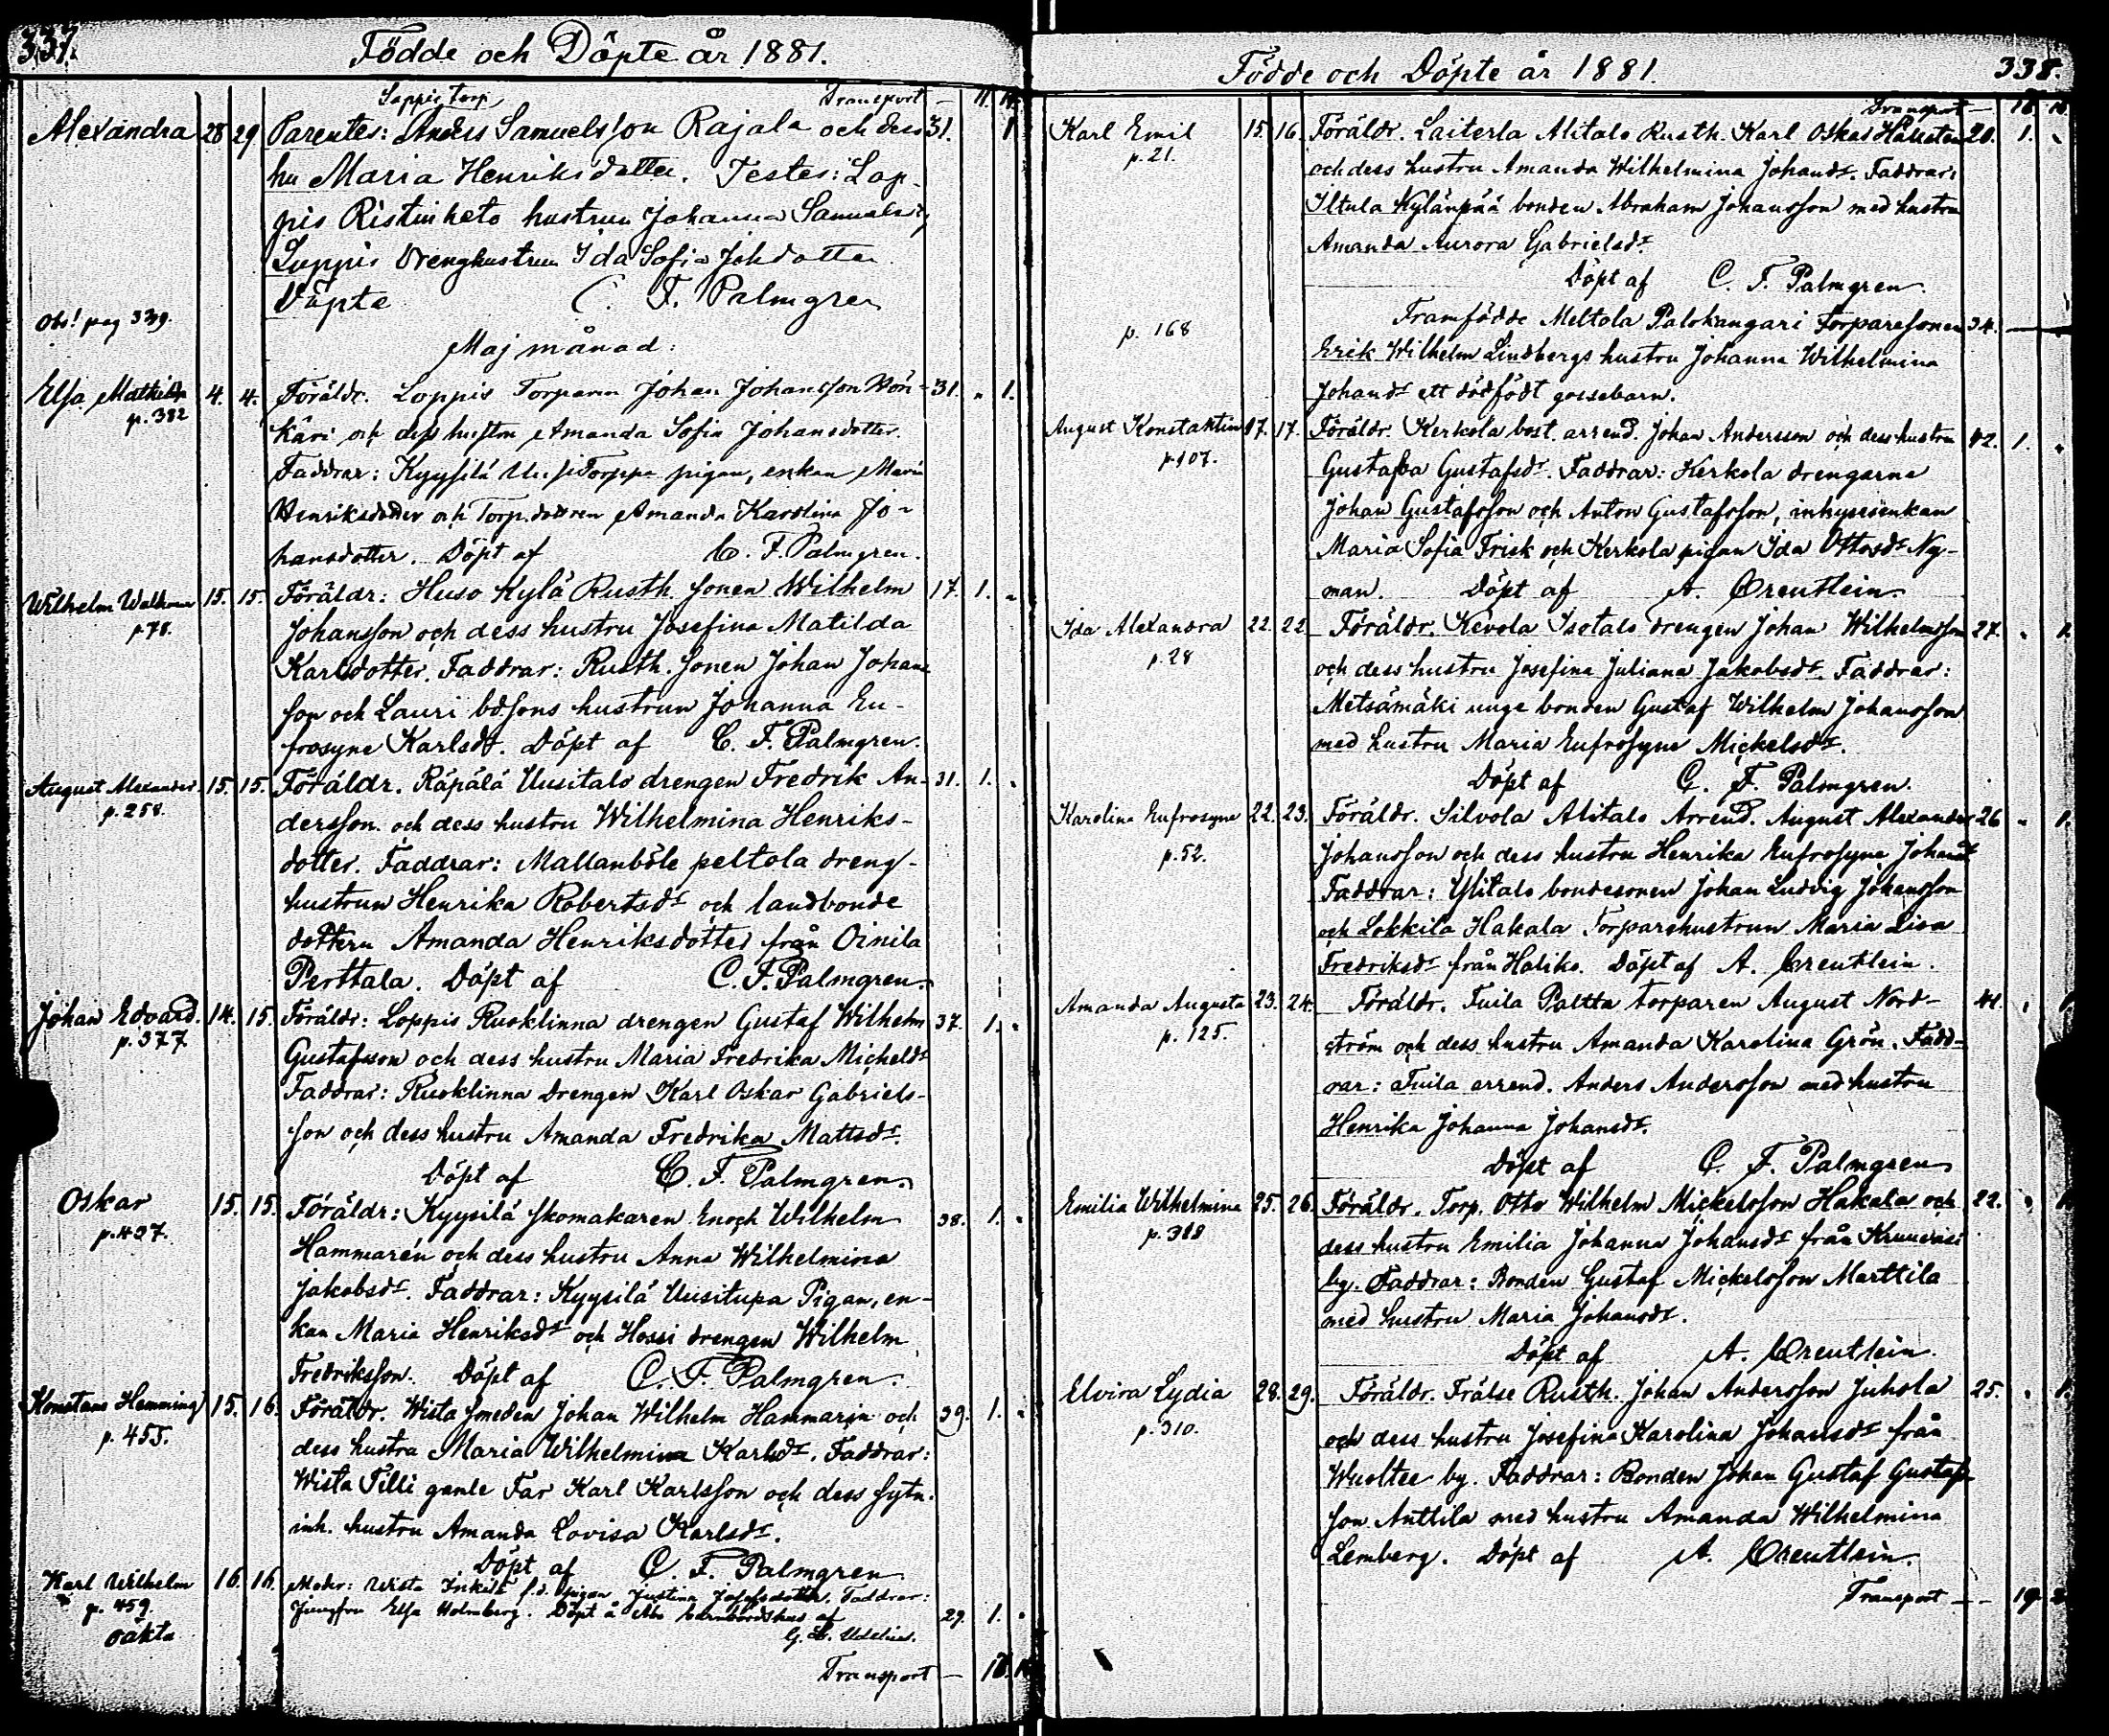 337.
Födde och Döpte år 1881.
Loppis torp Transport — 11.
Alexandra 28 29 Parentes: Anders Samuelsson Rajala och dess 31. 1
hu Maria Henriksdotter. Testes: Lop-
pis Ristinketo hustrun Johanna Samuelsd,
Loppis Drenghustrun Ida Sofia Johdotter
Döpte C. F. Palmgren
Obs! pag 339.
Maj månad:
Elsa Mathilda 4. 4. Föräldr. Loppis Torparen Johan Johansson
p. 382 31. " 1.
käri och dess hustru Amanda Sofia Johansdotter.
Faddrar: Kyysilä Torppa pigan, enkan Maria
Henriksdotter och Torp.dottren Amanda Karolina Jo-
hansdotter. Döpt af C. F. Palmgren.
Wilhelm 15. 15. Föräldr: Huso Kylä Rusth. sonen Wilhelm 17. 1. "
p 78.
Johansson och dess hustru Josefina Matilda
Karlsdotter. Faddrar: Rusth. sonen Johan Johans
son och Lauri bdsons hustrun Johanna Eu-
frosyne Karlsdr. Döpt af C. F. Palmgren.
August Alexander. 15. 15. Föräldr. Räpälä Uusitalo drengen Fredrik An- 31. 1. "
p. 258.
dersson och dess hustru Wilhelmina Henriks-
dotter. Faddrar: Mallanböle peltola dreng-
hustrun Henrika Robertsdr och landbonde
dottern Amanda Henriksdotter från Oinila
Perttala. Döpt af C. F. Palmgren.
Johan Edvard. 14. 15. Föräldr: Loppis Ruoklinna drengen Gustaf Wilhelm 37. 1. "
p. 377
Gustafsson och dess hustru Maria Fredrika Michelsdr
Faddrar: Ruoklinna drengen Karl Oskar Gabriels-
son och dess hustru Amanda Fredrika Mattsdr.
Döpt af C. F. Palmgren.
Oskar 15. 15. Föräldr: Kyysilä skomakaren Enoch Wilhelm 38. 1. "
p. 437.
Hammarén och dess hustru Anna Wilhelmina
Jakobsdr. Faddrar: Kyysilä Uusitupa Pigan, en-
kan Maria Henriksdr och Hossi drengen Wilhelm
Fredriksson. Döpt af C. F. Palmgren.
Konstans Hemming 15. 16. Föräldr. Wista smeden Johan Wilhelm Hammarén och 39. 1. "
p. 455.
dess hustru Maria Wilhelmina Karlsdr. Faddrar:
Wista Tilli gamle Far Karl Karlsson och dess sytn.
inh. hustru Amanda Lovisa Karlsdr.
Döpt af C. F. Palmgren
Karl Wilhelm 16. 16. Moder: Wista f.d. pigan Justina Josefsdotter. Faddrar:
p. 459
Jungfru Elsa Holmberg. Döpt å Åbo barnbördshus af 29. 1. "
oäkta
Transport — 18.
Födde och Döpte år 1881.
338.
Transport — 18.
Karl Emil 15. 16. Föräldr. Laiterla Alitalo Rusth. Karl Oskar Hällsten 20. 1.
p. 21.
och dess hustru Amanda Wilhelmina Johandr. Faddrar:
Iltula Kylänpää bonden Abraham Johansson med hustru
Amanda Aurora Gabrielsdr
Döpt af C. F. Palmgren.
p. 168 Framfödde Meltola Palokangari Torparesonen 34. —
Erik Wilhelm Lindbergs hustru Johanna Wilhelmina
Johandr ett dödfödt gossebarn.
August Konstantin 17. 17. Föräldr. Kerkola bost. arrend. Johan Andersson och dess hustru 42. 1. "
p 107.
Gustafva Gustafsdr. Faddrar: Kerkola drengarne
Johan Gustafsson och Anton Gustafsson, inhysesenkan
Maria Sofia Frisk och Kerkola pigan Ida Ottosdr Ny-
man. Döpt af A. Creutlein.
Ida Alexandra 22. 22. Föräldr. Kevola Isotalo drengen Johan Wilhelmsson 27. " 1.
p. 28
och dess hustru Josefina Juliana Jakobsdr. Faddrar:
Metsämäki unge bonden Gustaf Wilhelm Johansson
med hustru Maria Eufrosyne Mickelsdr.
Döpt af C. F. Palmgren.
Karolina Eufrosyne 22. 23. Föräldr. Silvola Alitalo Arrend. August Alexander 26 " 1.
p. 52.
Johansson och dess hustru Henrika Eufrosyne Johansdr
Faddrar: Ylitalo bondesonen Johan Ludvig Johansson
och Lokkila Hakala Torparehustrun Maria Lisa
Fredriksdr från Haliko. Döpt af A. Creutlein.
Amanda Augusta 23. 24. Föräldr. Tuila Paltta torparen August Nord- 41.
p. 125.
ström och dess hustru Amanda Karolina Grön. Fadd-
rar: Tuila arrend. Anders Andersson med hustru
Henrika Johanna Johansdr.
Döpt af C. F. Palmgren
Emilia Wilhelmina 25. 26. Föräldr. Torp. Otto Wilhelm Mickelsson Hakala och 22.
p. 318
dess hustru Emilia Johanna Johansdr från
by. Faddrar: Bonden Gustaf Mickelsson Marttila
med hustru Maria Johansdr.
Döpt af A. Creutlein.
Elvira Lydia 28. 29. Föräldr. Frälse Rusth. Johan Andersson Juhola 25. " 1.
p. 310.
och dess hustru Josefina Karolina Johansdr från
Wuoltee by. Faddrar: Bonden Johan Gustaf Gustafs-
son Anttila med hustru Amanda Wilhelmina
Lemberg. Döpt af A. Creutlein.
Transport — 19.